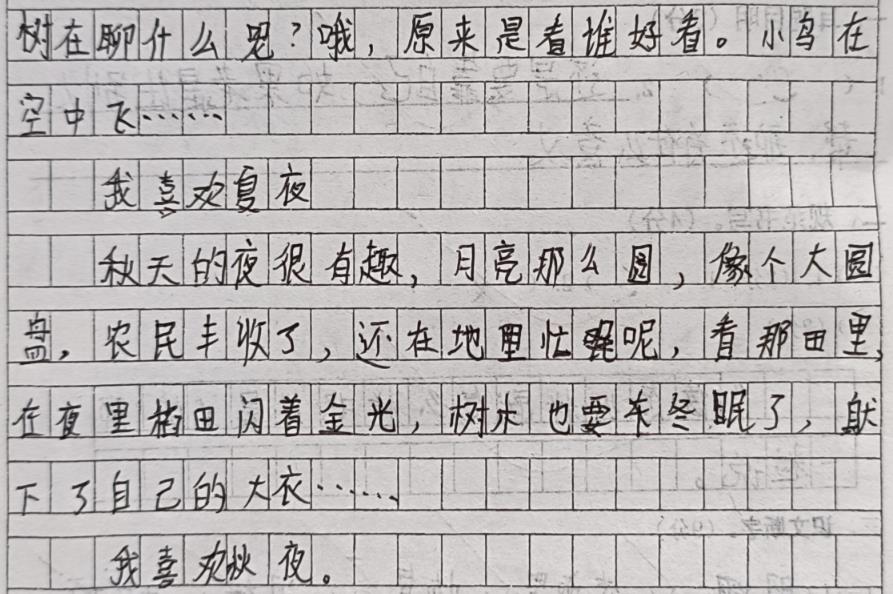 树在聊什么呢？哦，原来是看谁好看。小鸟在
空中飞……
我喜欢夏夜
秋天的夜很有趣，月亮那么圆，像个大圆
盘，农民丰收了，还在地里忙呢，看那田里，
在夜里稻田闪着金光，树木也要冬眠了，
下了自己的大衣……
我喜欢秋夜。